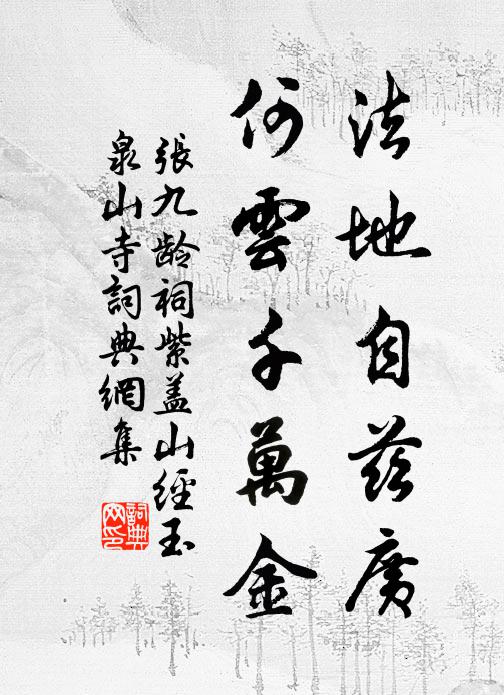 法地自茲廣
何雲千萬金
張九龄祠紫蓋山經玉
泉山寺詞典網集
詞典网印